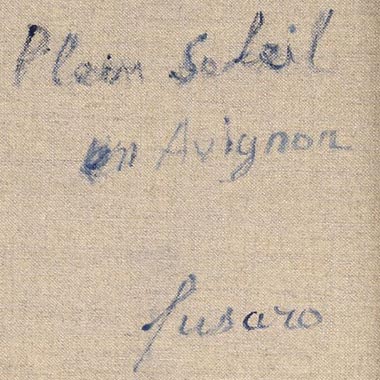 Plein Soleil
en Avignon
fusaro